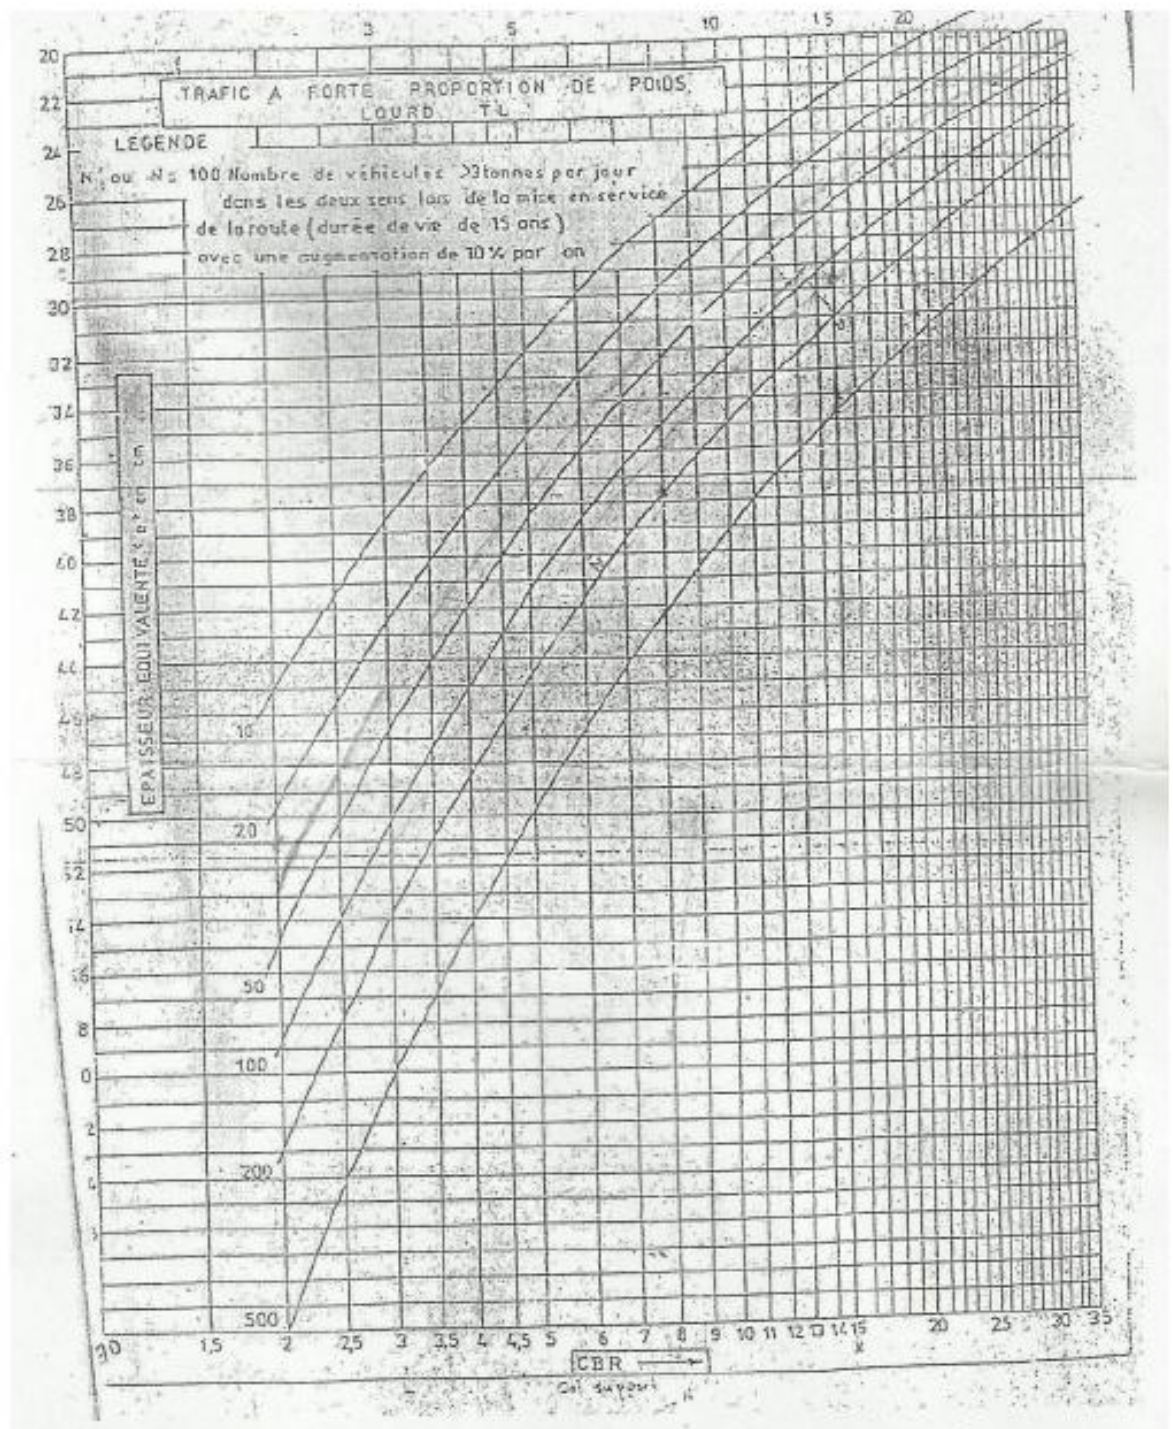 3 5 10 15 20
TRAFIC A FORTE PROPORTION DE POIDS
LOURD TL
LEGENDE
N' ou N= 100 Nombre de véhicules >3tonnes par jour
dans les deux sens lors de la mise en service
de la route (durée de vie de 15 ans)
avec une augmentation de 10% par an
20
22
24
26
28
30
32
34
36
38
40
42
44
46
48
50
52
EPAISSEUR EQUIVALENTE "e" en cm
10
20
50
100
200
500
1,5 2 2,5 3 3,5 4 4,5 5 6 7 8 9 10 11 12 13 14 15 20 25 30 35
CBR